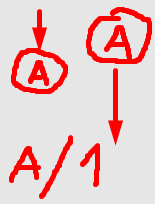 A A
A/1